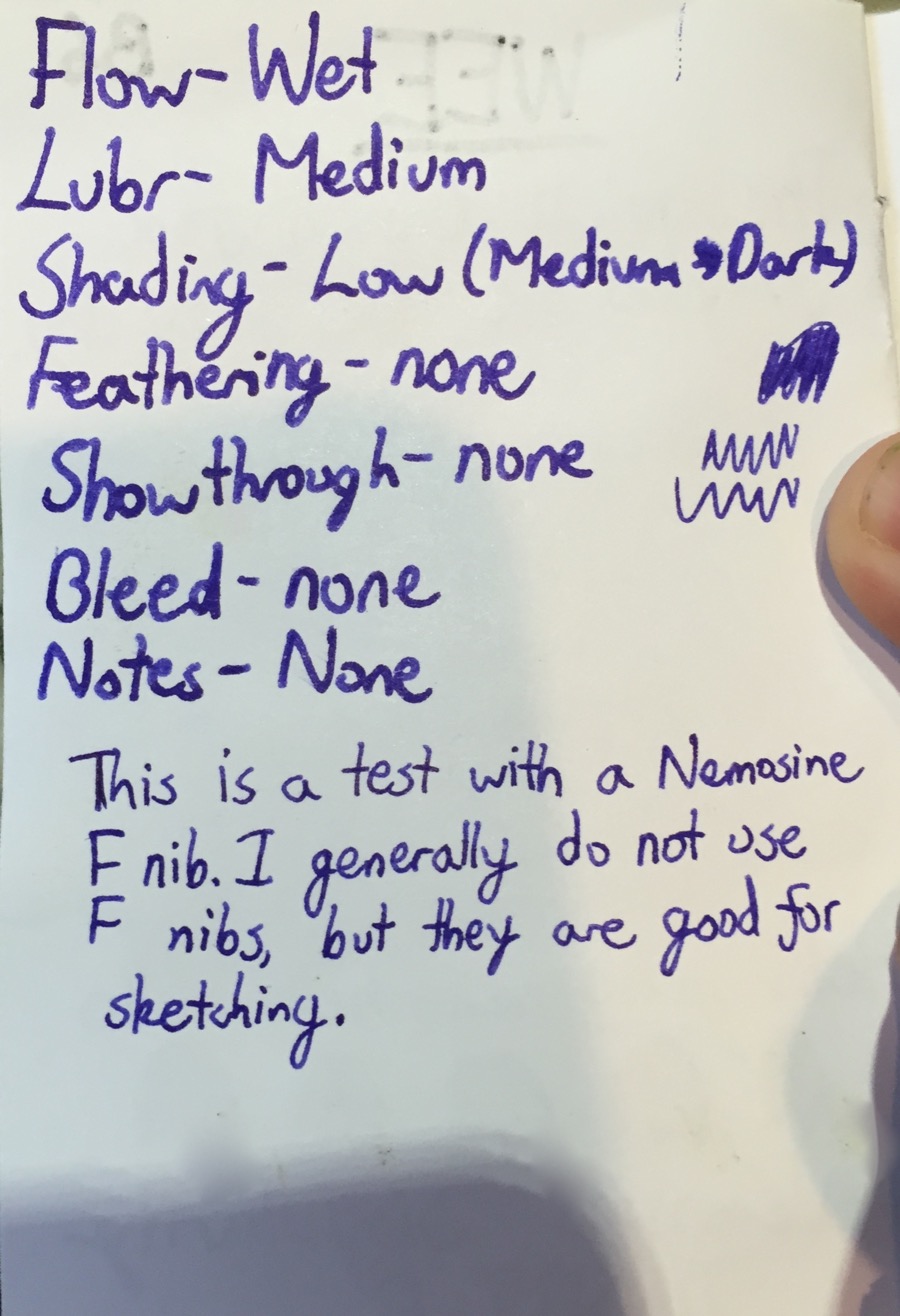 Flow- Wet
Lubr- Medium
Shading- Low (Medium → Dark)
Feathering - none
Showthrough- none
Bleed- none
Notes- None
This is a test with a Nemosine
F nib. I generally do not use
F nibs, but they are good for
sketching.